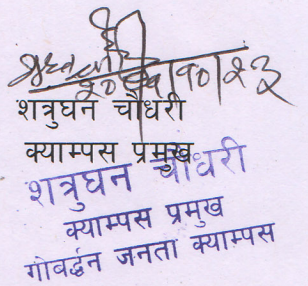 शत्रुघन चौधरी
क्याम्पस प्रमुख
शत्रुघन चौधरी
क्याम्पस प्रमुख
गोवर्द्धन जनता क्याम्पस